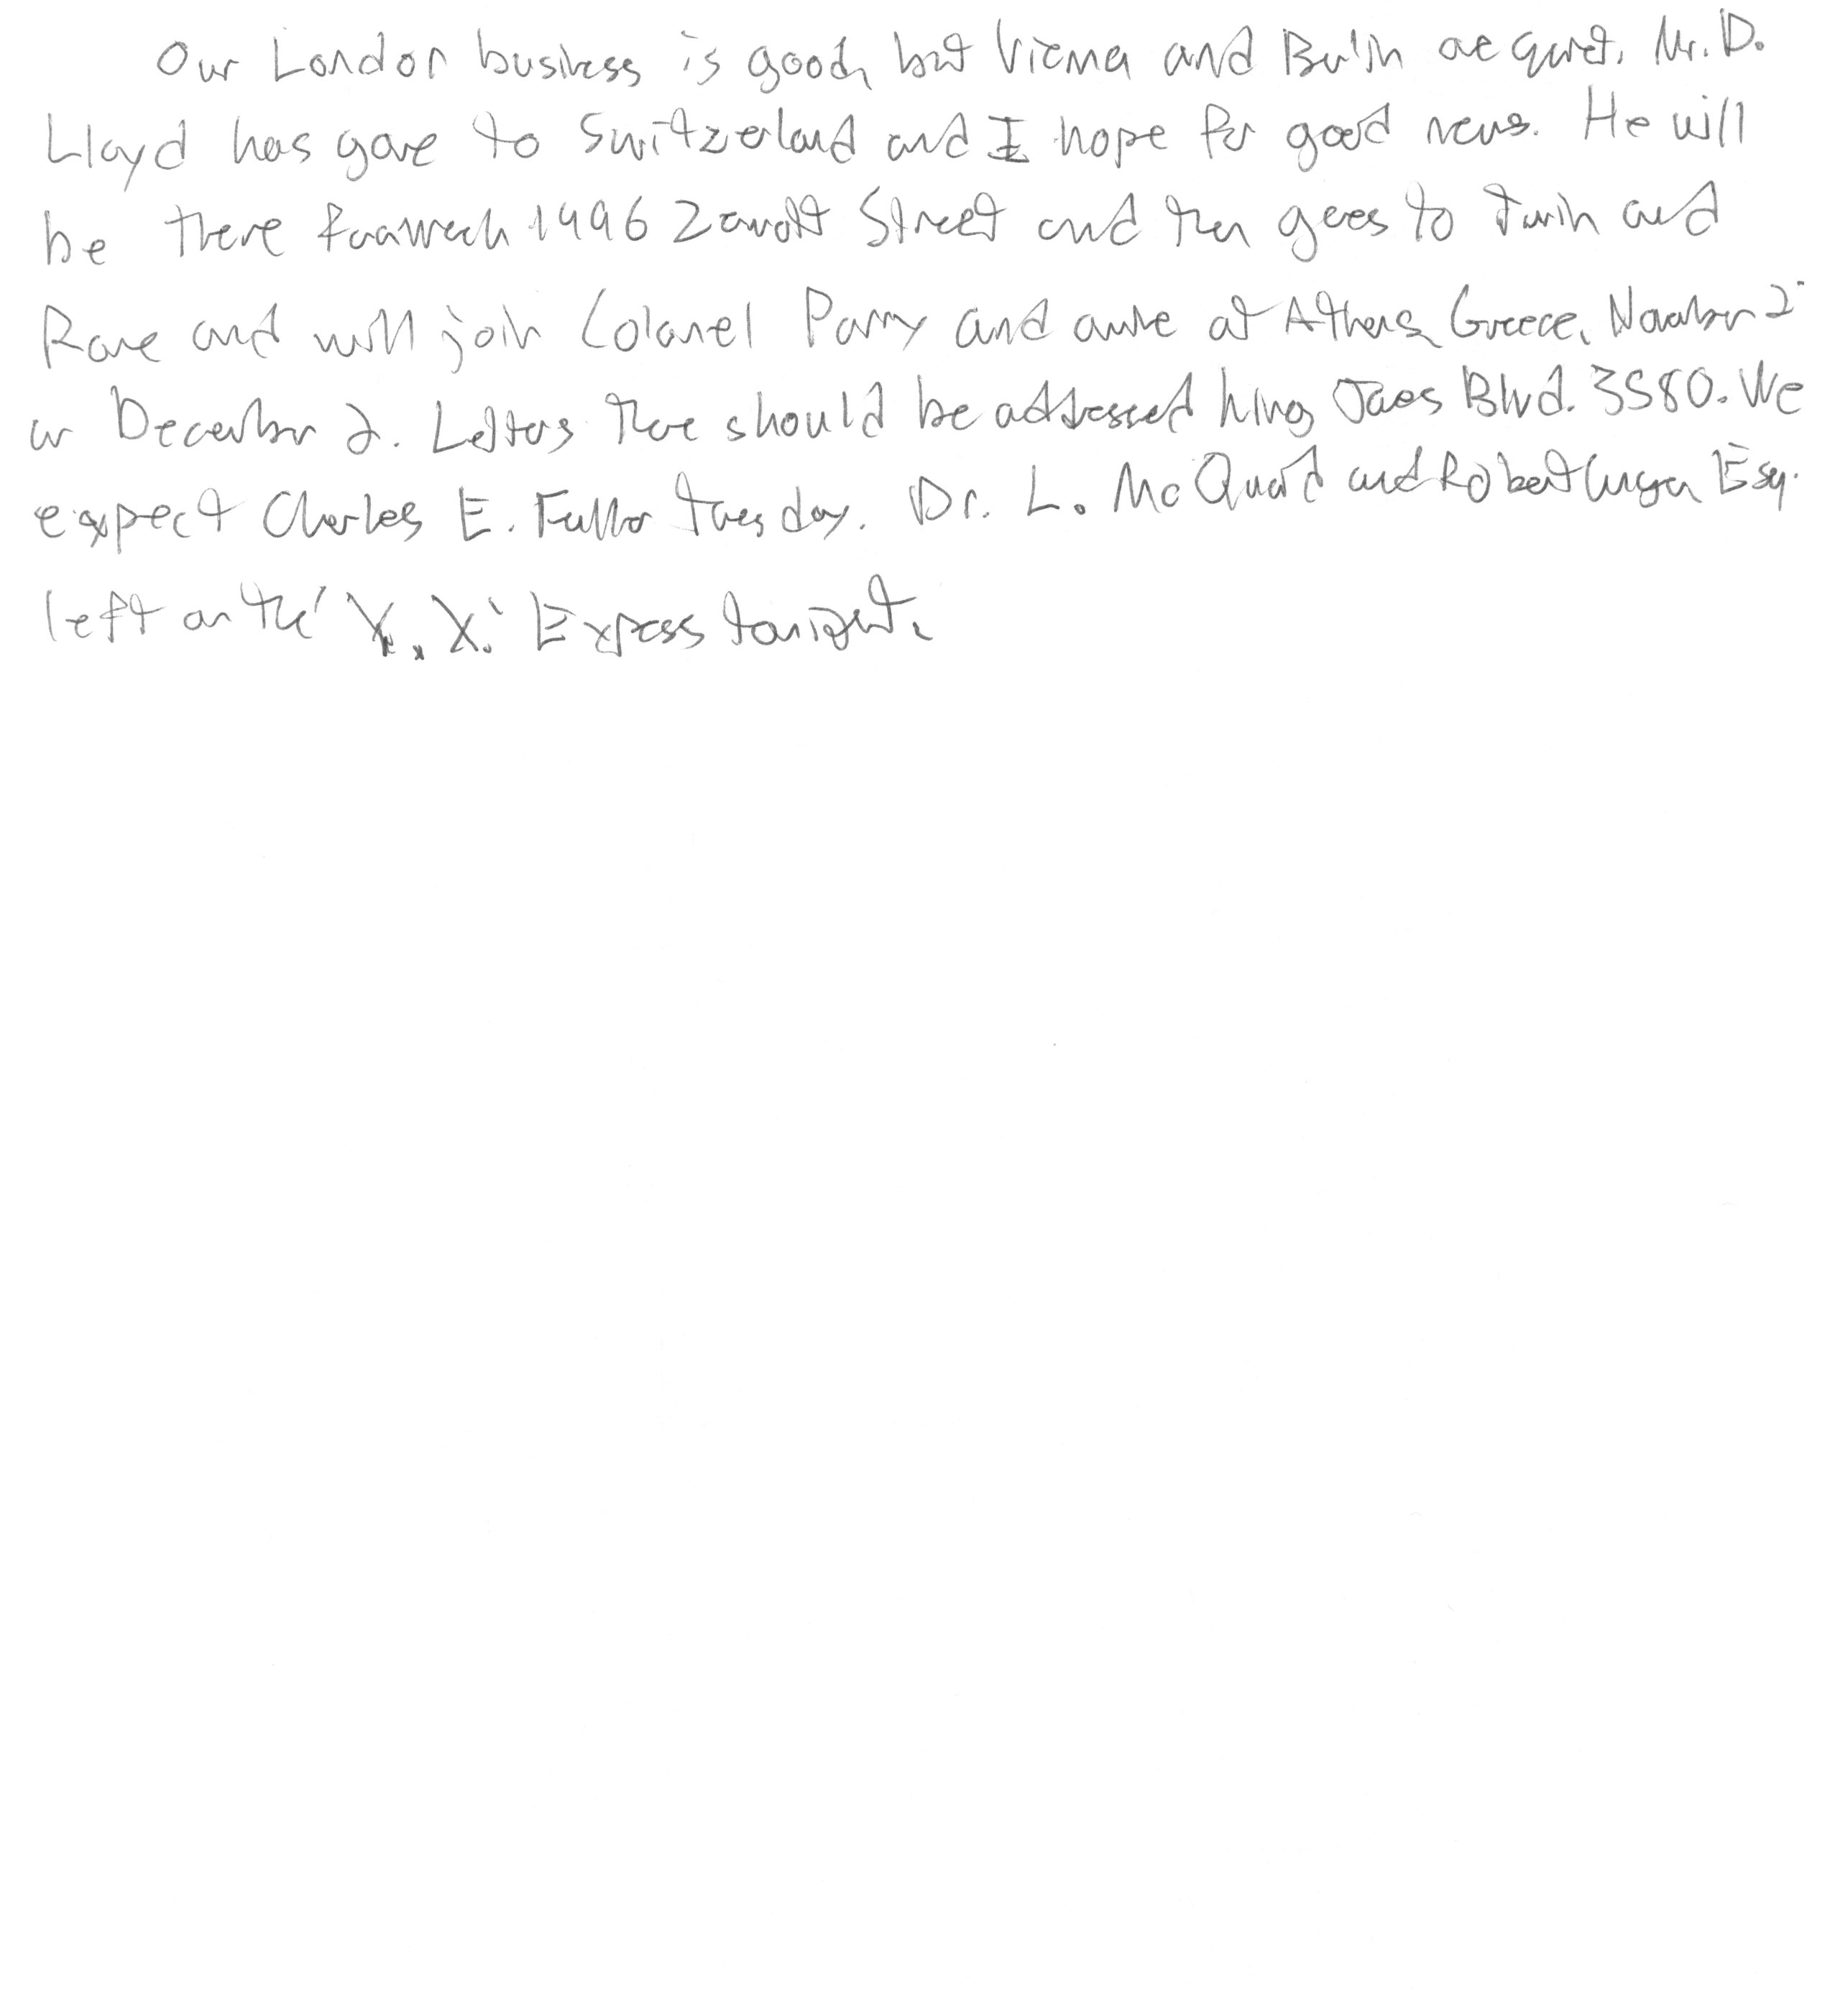 Our London business is good, but Vienna and Berlin are quiet. Mr. D.
Lloyd has gone to Switzerland and I hope for good news. He will
be there for a week 1496 Zermott Street and then goes to Turin and
Rome and will join Colonel Parry and arrive at Athens, Greece, November 2
or December 2. Letters there should be addressed King James Blvd. 3580. We
expect Charles E. Fuller Tuesday. Dr. L. McQuaid and Robert Unger Esq.
left on the 'Y. X.' Express tonight.